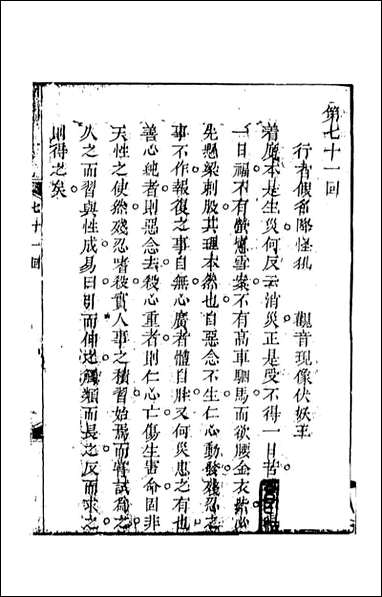 第七十一回
行者假名降怪犼　觀音現像伏妖王
着原本是生災何反云消災正是受不得一日苦
一日福不有螢牕雪案不有高車駟馬而欲腰金衣紫必
先懸梁刺股其理本然也自惡念不生仁心動發殘忍之
事不作報復之事自無心廣者體自胖又何災患之有也
善心純者則惡念去殺心重者則仁心亡傷生害命固非
天性之使然殘忍嗜殺實人事之積習始焉而嘗試為之
久之而習與性成易曰引而伸之觸類而長之反而求之
則得之矣
七十一回